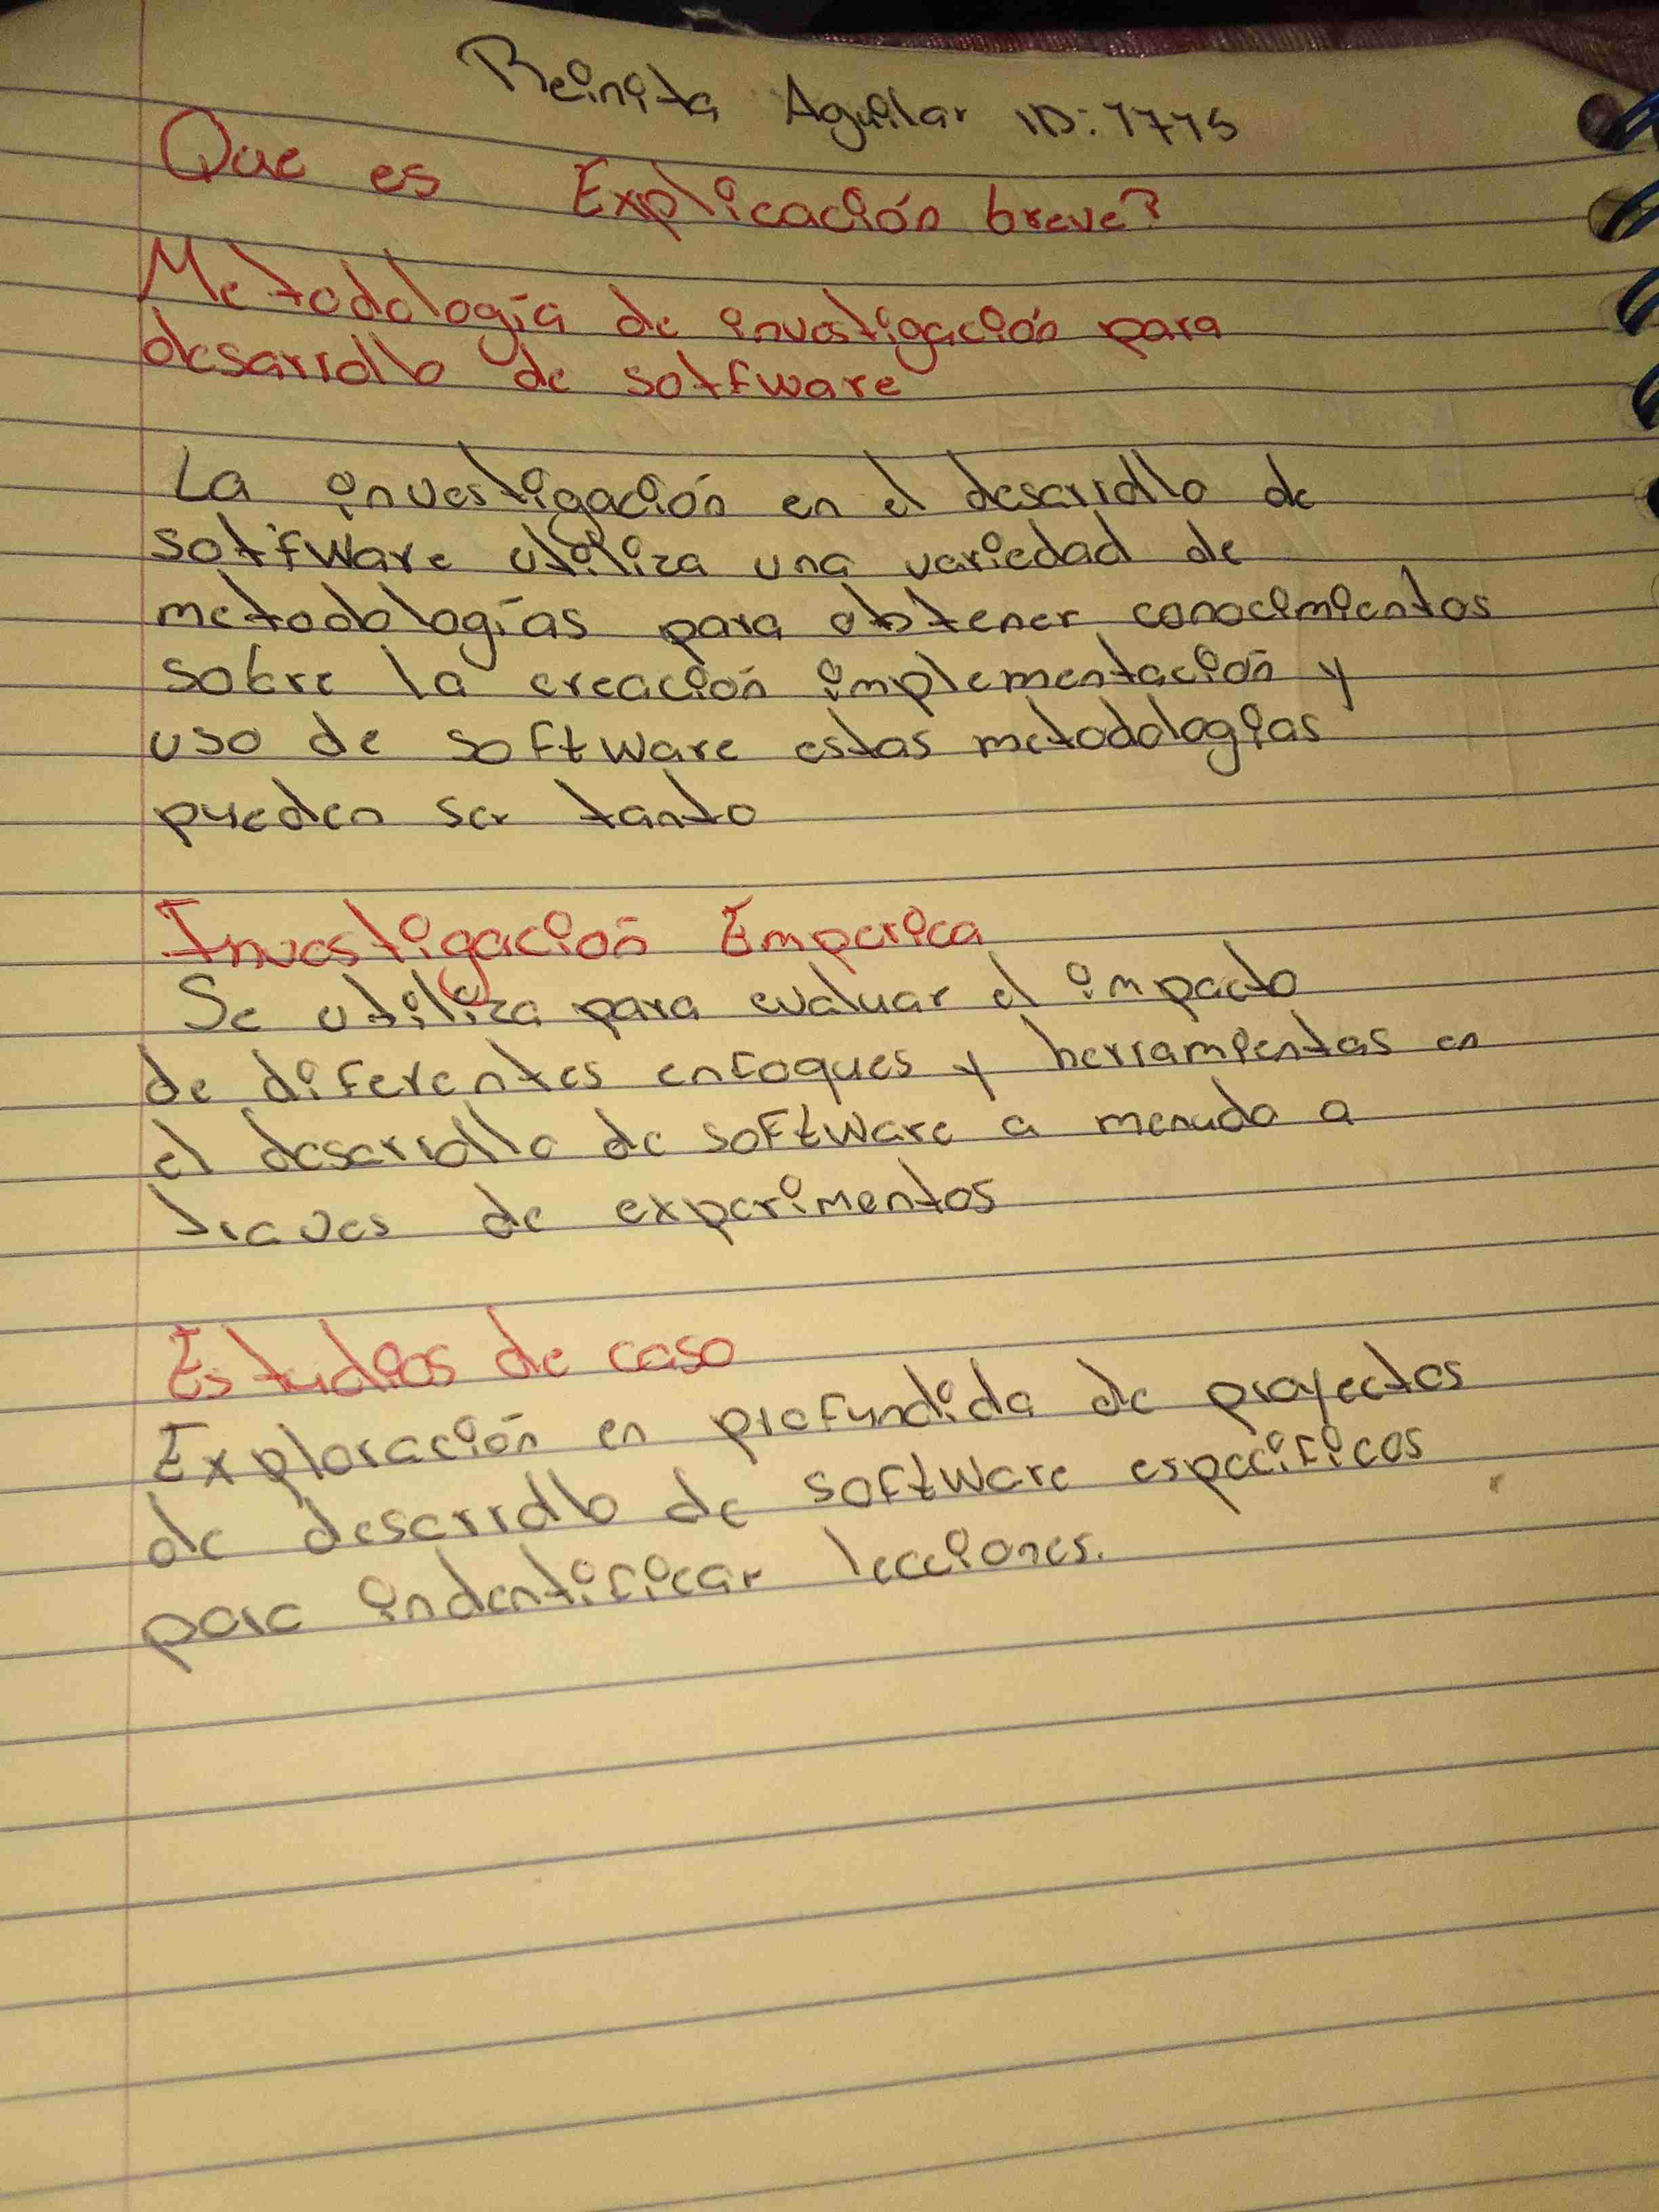 Reinita Aguilar ID: 1775
Que es Explicación breve?
Metodología de investigación para
desarrollo de sotfware
La investigación en el desarrollo de
sotfware utiliza una variedad de
metodologías para obtener conocimientos
sobre la creación implementación y
uso de software estas metodologias
pueden ser tanto
Investigación Emperica
Se utiliza para evaluar el impacto
de diferentes enfoques y herramientas en
el desarrollo de software a menudo a
traves de experimentos
Estudios de caso
Exploración en profundida de proyectos
de desarrollo de software especificos
para indentificar lecciones.